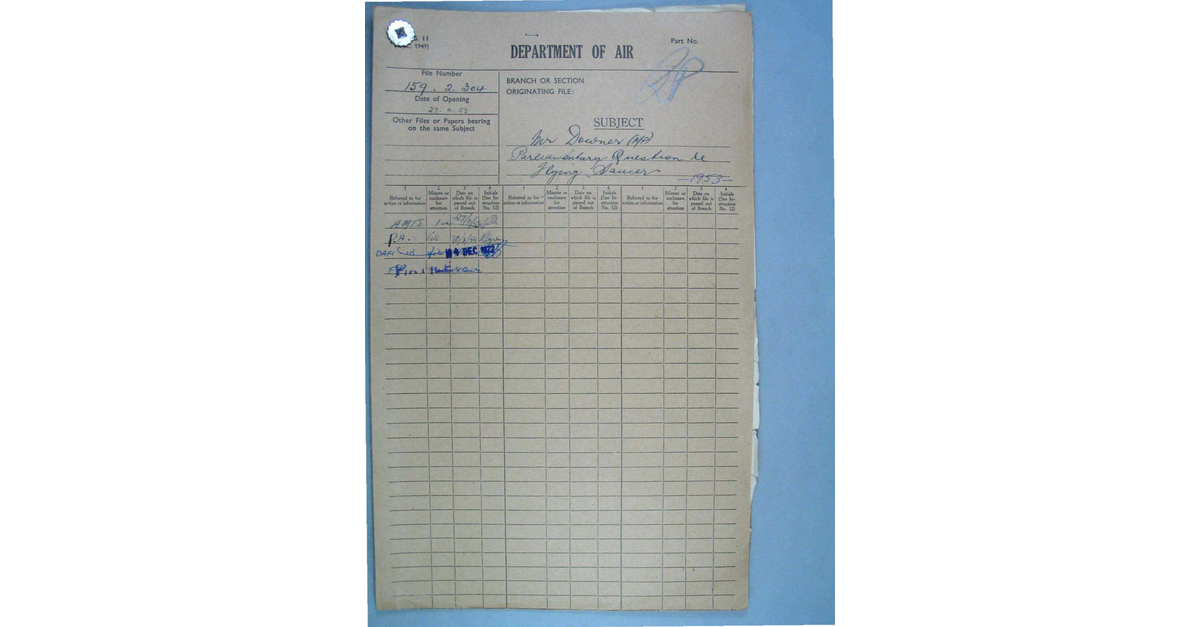 11
1949)
DEPARTMENT OF AIR
Part No.
File Number
159 . 2 . 304
Date of Opening
BRANCH OR SECTION
ORIGINATING FILE:
Other Files or Papers bearing
on the same Subject
SUBJECT
Mr Downer (MP)
Parliamentary Question re
Flying Saucers
—1953—
1 2 3 4 1 2 3 4 1 2 3 4
Referred to for action or information Minute or enclosure for attention Date on which file is passed out of Branch Initials (See Instruction No. 12) Referred to for action or information Minute or enclosure for attention Date on which file is passed out of Branch Initials (See Instruction No. 12) Referred to for action or information Minute or enclosure for attention Date on which file is passed out of Branch Initials (See Instruction No. 12)
P.A.
DEC